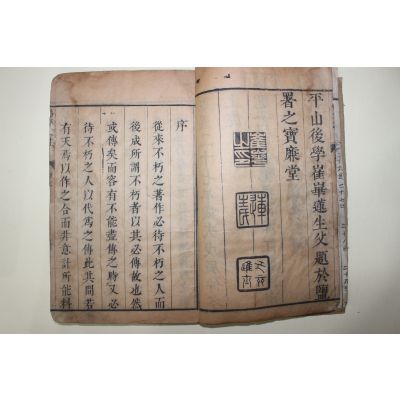 平山後學崔畢蓮生父題於鹽
署之寶廉堂
序
從來不朽之著作必待不朽之人而
後成所謂不朽者以其必傳故也然
或傳矣而容有不能盡傳之時又必
待不朽之人以代為之傳此其間若
有天焉以作之合而非意計所能料